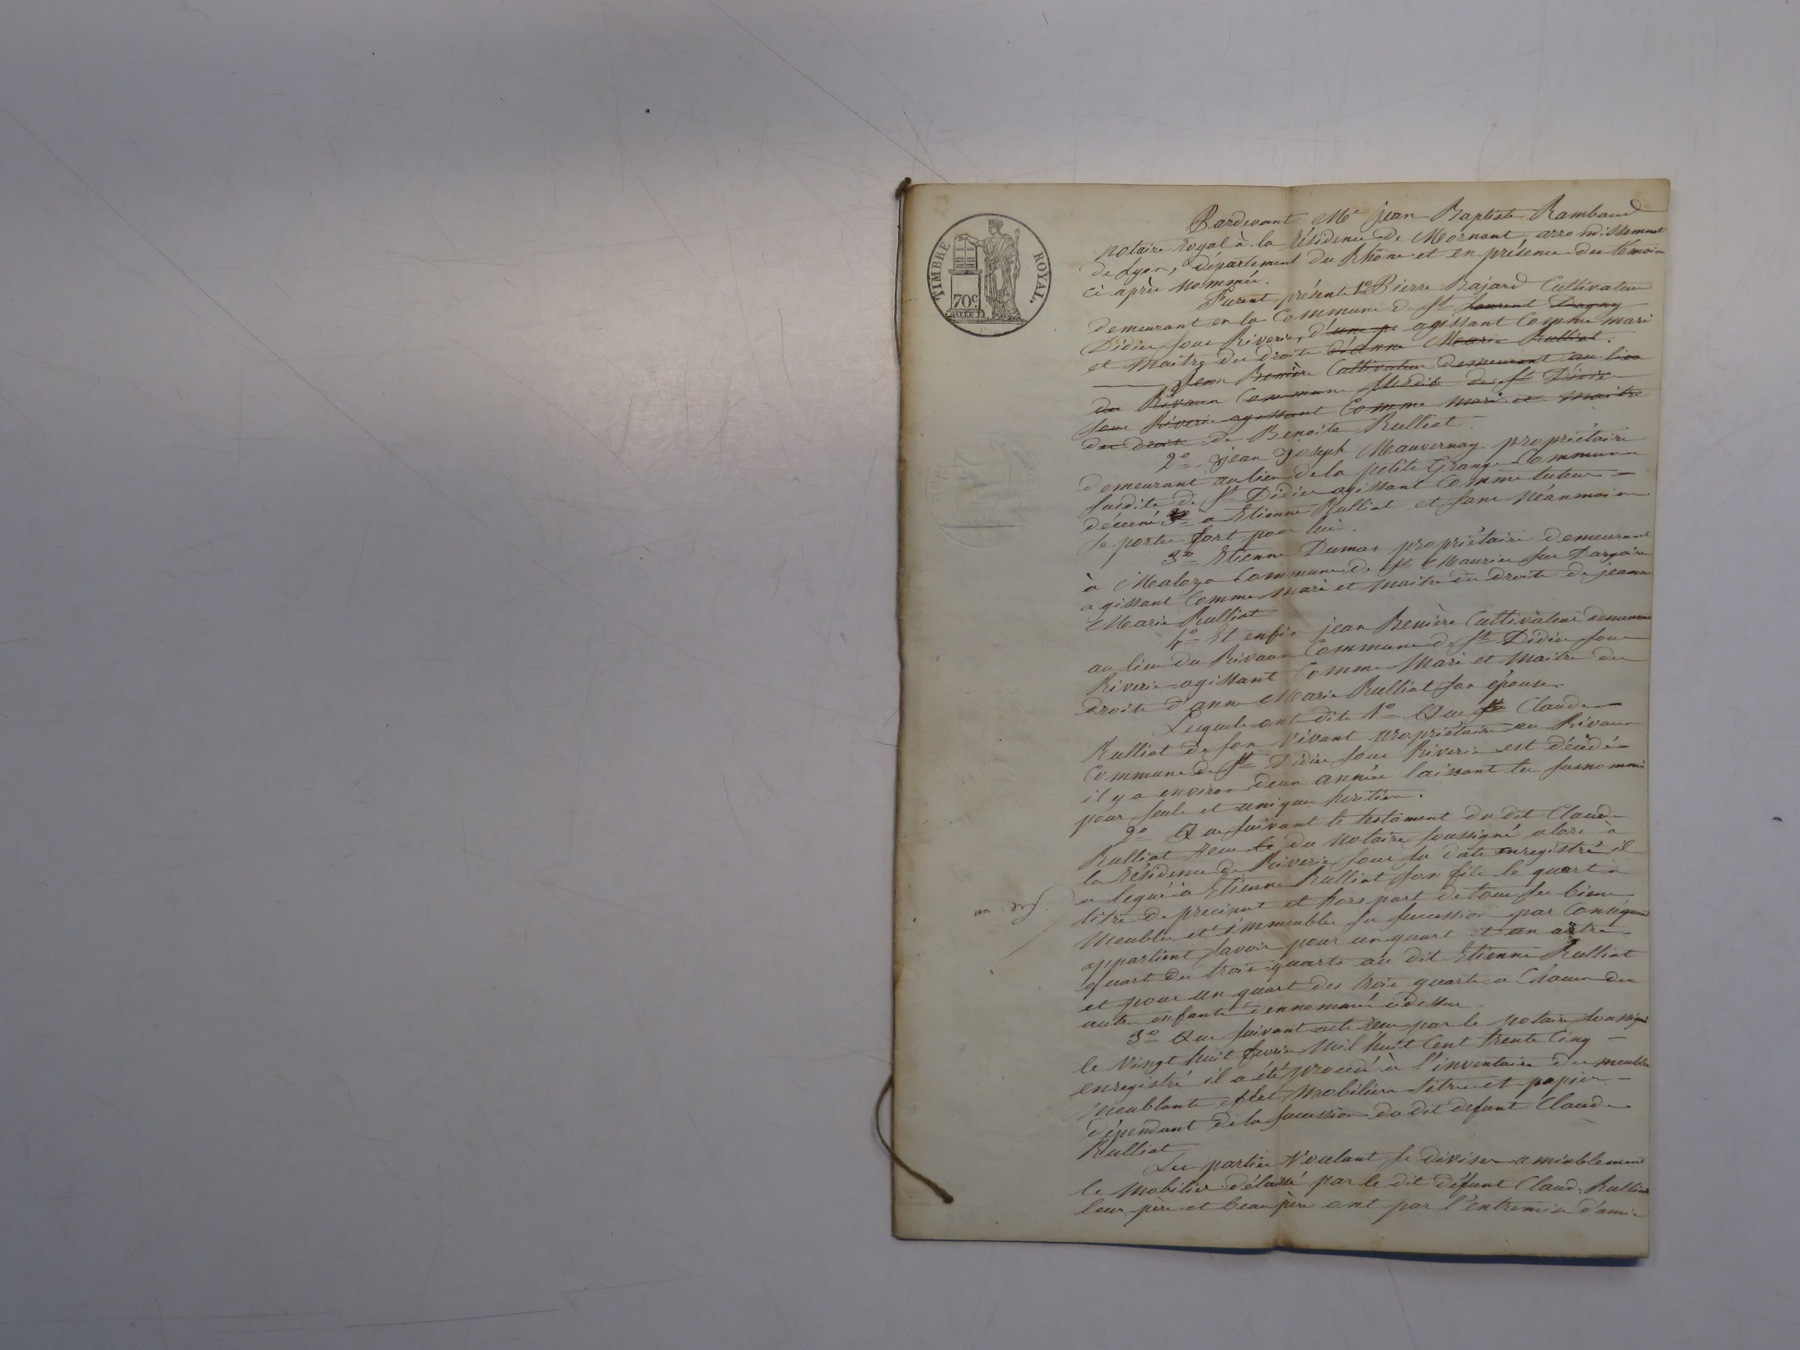 TIMBRE ROYAL.
70c
Pardevant Me jean Baptiste Rambaud
notaire Royal à la Résidence de Mornant, arrondissement
de Lyon, département du Rhône et en présence des témoins
ci après nommés.
Furent présents 1o Pierre Bajard Cultivateur
demeurant en la Commune de St Laurent Dagny
Didier sous Riverie, d'une pt agissant Comme mari
et maitre des droits d'Anne Marie Rulliat.
2o jean Benière Cultivateur demeurant au lieu
du Rivaux Commune susdite de St Didier
sous Riverie agissant Comme mari et maitre
des droits de Benoite Rulliat
2o jean joseph Mauvernay propriétaire
demeurant au lieu de la petite Grange Commune
susdite de St Didier agissant Comme tuteur
décerné à Etienne Rulliat et sans néanmoins
se porter fort pour lui.
3o Etienne Dumas propriétaire demeurant
à Malozo Commune de St Maurice sur Dargoire
agissant Comme mari et maitre des droits de jeanne
Marie Rulliat
4o Et enfin jean Benière Cultivateur demeurant
au lieu du Rivaux Commune de St Didier sous
Riverie agissant Comme Mari et Maitre des
droits d'anne Marie Rulliat son épouse.
Lesquels ont dit 1o Que Claude
Rulliat de son vivant propriétaire au Rivaux
Commune de St Didier sous Riverie est décédé
il y a environ deux années laissant les susnommés
pour seuls et uniques héritiers.
2o Que suivant le testament du dit Claude
Rulliat reçu le du notaire soussigné alors à
la Résidence de Riverie sous sa date enregistré il
a légué à Etienne Rulliat son fils le quart à
titre de préciput et hors part de tous ses biens
meubles et immeubles sa succession par Conséquent
appartient savoir pour un quart et un autre
quart des trois quarts au dit Etienne Rulliat
et pour un quart des trois quarts a Chacun des
autres enfants dennommés cidessus
3o Que suivant acte reçu par le notaire soussigné
le vingt huit février mil huit Cent trente Cinq
enregistré il a été procédé à l'inventaire des meubles
meublants effets mobiliers titres et papiers
dépendant de la succession du dit defunt Claude
Rulliat
Les parties voulant se diviser amiablement
le mobilier délaissé par le dit défunt Claude Rulliat
leur père et beau père ont par l'entremise d'amis
un